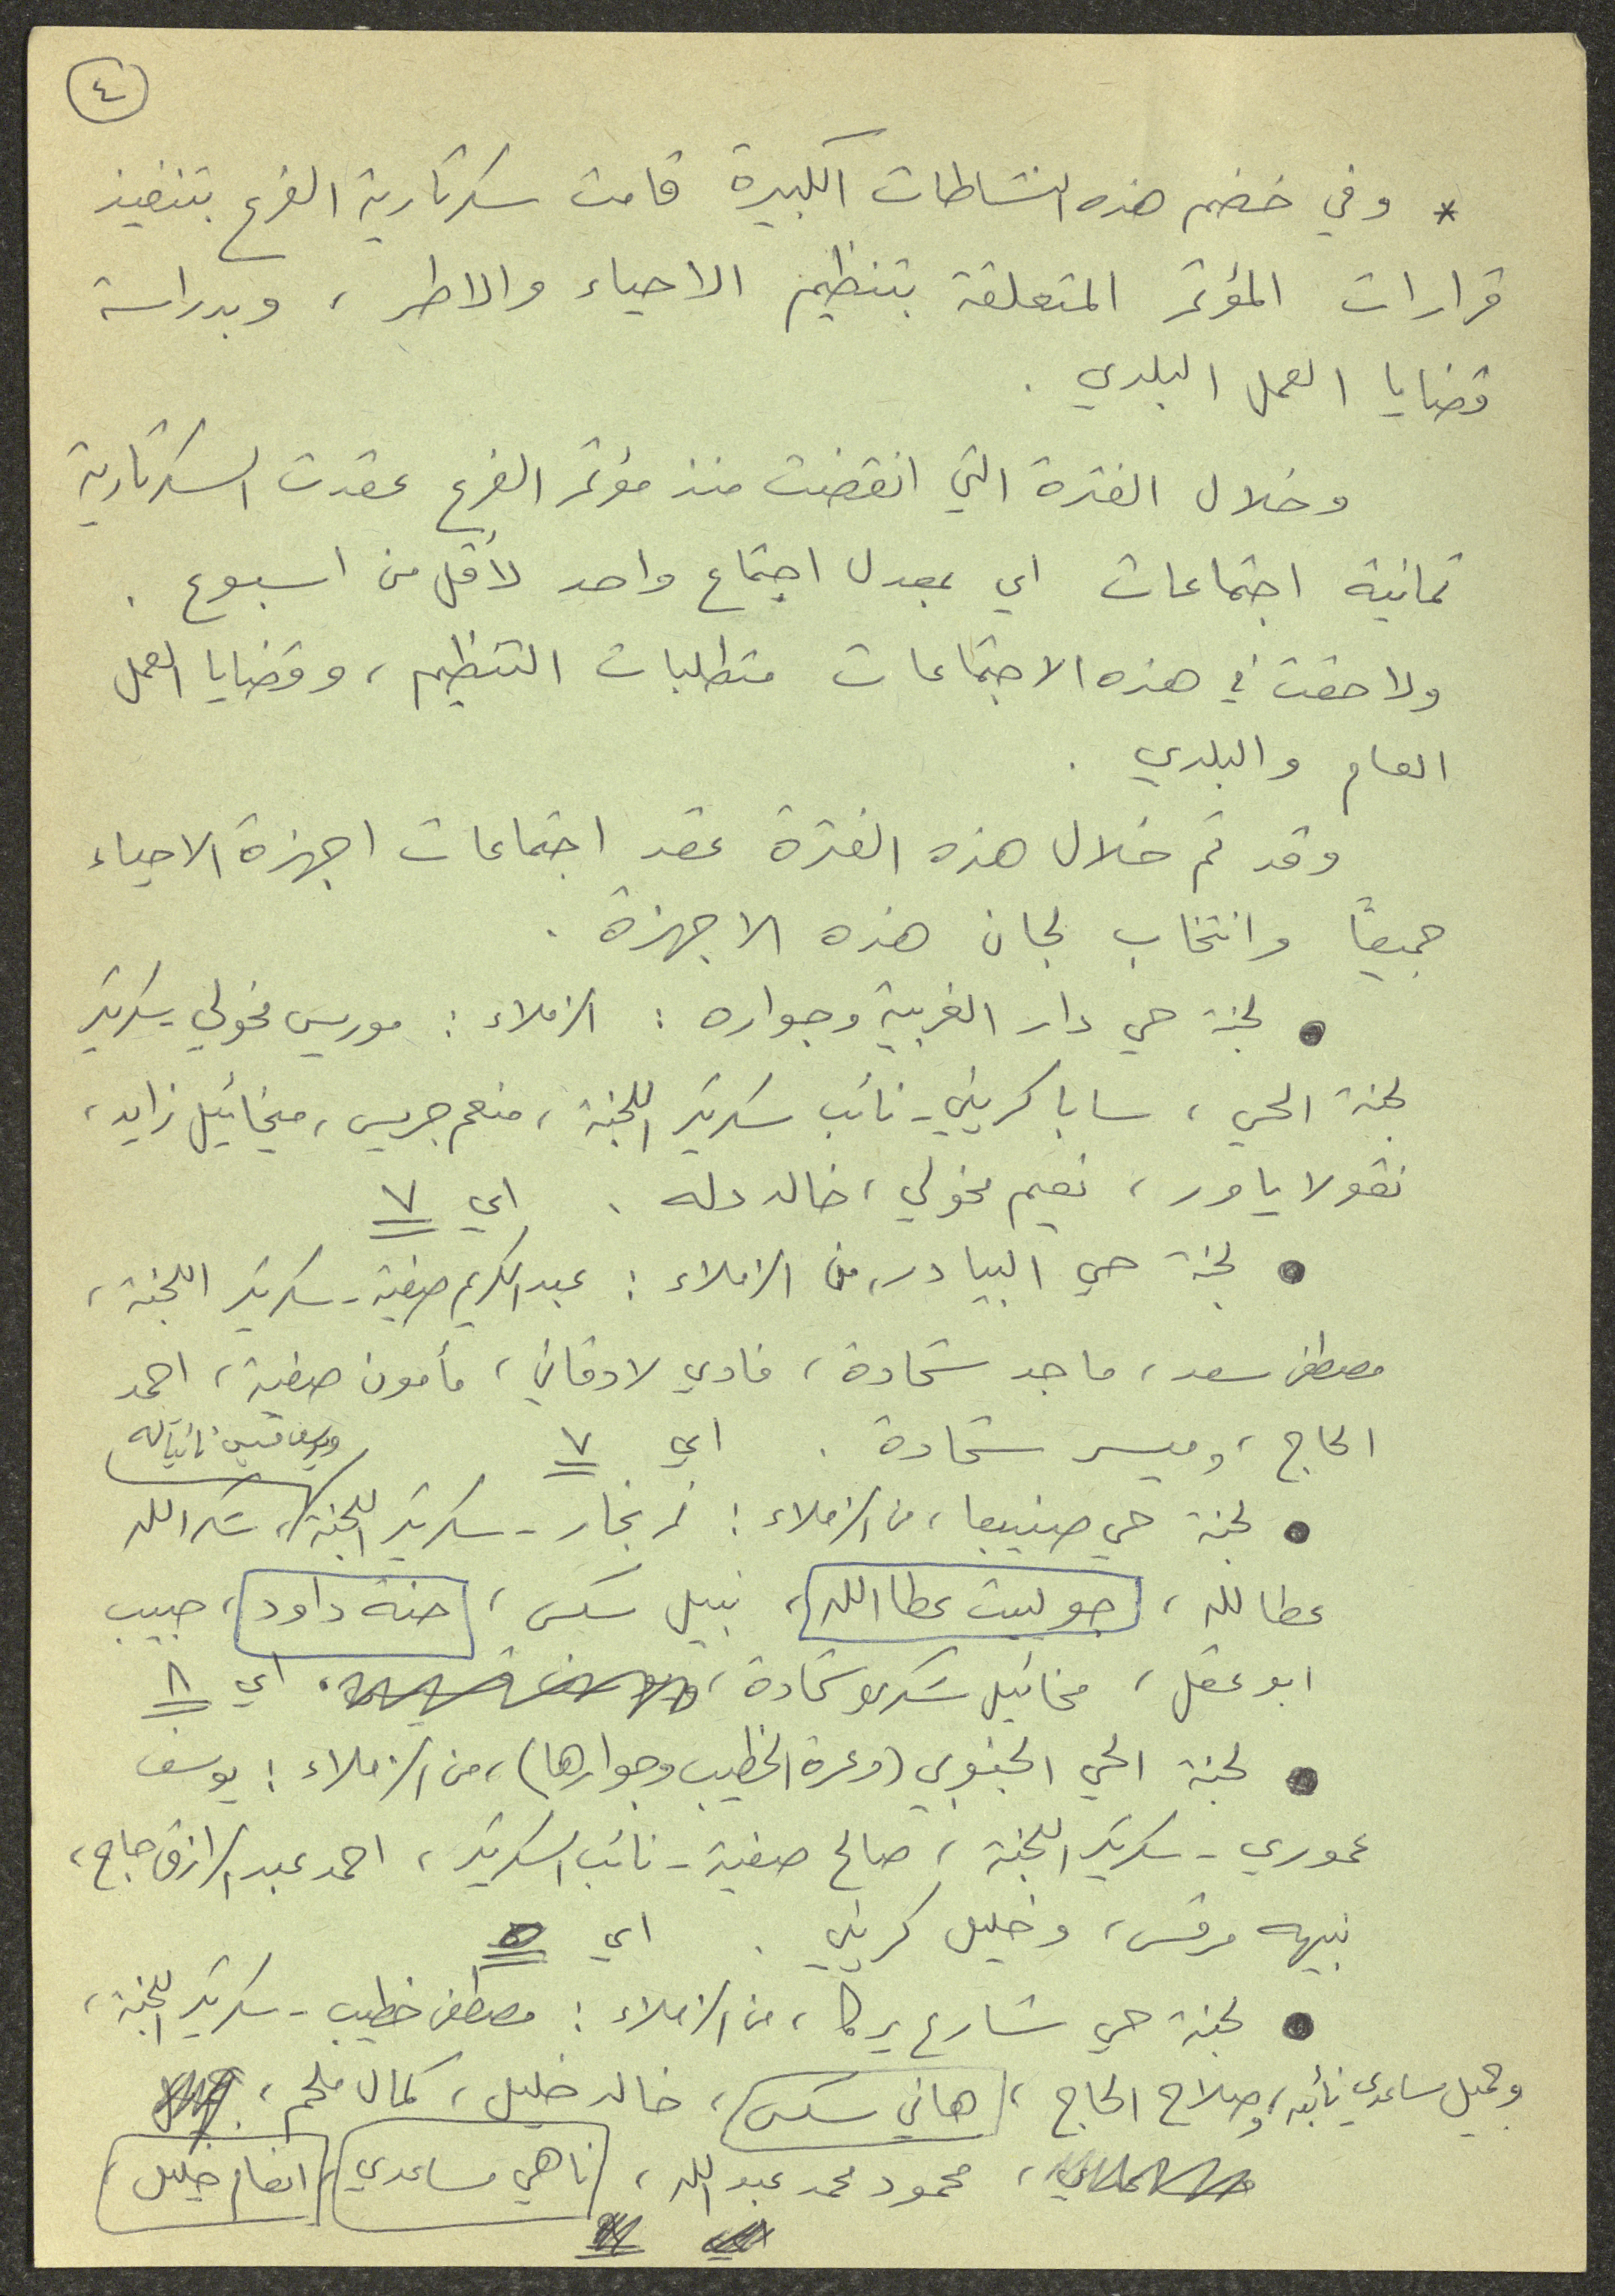 ٤
* وفي خضم هذه النشاطات الكبيرة قامت سكرتارية الفرع بتنفيذ
قرارات المؤتمر المتعلقة بتنظيم الاحياء والاطر ، وبدراسة
قضايا العمل البلدي .
وخلال الفترة التي انقضت منذ مؤتمر الفرع عقدت السكرتارية
ثمانية اجتماعات اي بمعدل اجتماع واحد لأقل من اسبوع .
ولاحقت في هذه الاجتماعات متطلبات التنظيم ، وقضايا العمل
العام والبلدي .
وقد تم خلال هذه الفترة عقد اجتماعات اجهزة الاحياء
جميعًا وانتخاب لجان هذه الاجهزة .
● لجنة حي دار الغربية وجواره : الزملاء : موريس مخولي - سكرتير
لجنة الحي ، سابا كريني - نائب سكرتير اللجنة ، منعم جريس ، ميخائيل زايد ،
نقولا ياور ، نعيم مخولي ، خالد دله . اي ٧
● لجنة حي البيادر ، من الزملاء : عبد الكريم صفية - سكرتير اللجنة ،
مصطفى سعد ، ماجد شحادة ، فادي لادقاني ، مأمون صفية ، احمد
الحاج ، وميسر شحادة . اي ٧
نائبًا له
● لجنة حي صنيبعا ، من الزملاء : نمر نجار - سكرتير اللجنة ، شكرالله
عطالله ، جوليت عطاالله ، نبيل سكس ، حنة داود ، حبيب
ابو عقل ، مخائيل شكري شحادة ، . اي ٨
● لجنة الحي الجنوبي (وعرة الخطيب وجوارها) ، من الزملاء : يوسف
عموري - سكرتير اللجنة ، صالح صفية - نائب السكرتير ، احمد عبد الرازق حاج ،
نبيه مرقس ، وخليل كريني . اي ٥
● لجنة حي شارع يركا ، من الزملاء : مصطفى خطيب - سكرتير اللجنة ،
وجميل مساعدي نائبه ، وصلاح الحاج ، هاني سكس ، خالد خليل ، كمال ملحم ،
، محمود محمد عبد الله ، ناهي مساعدي ، انعام خليل